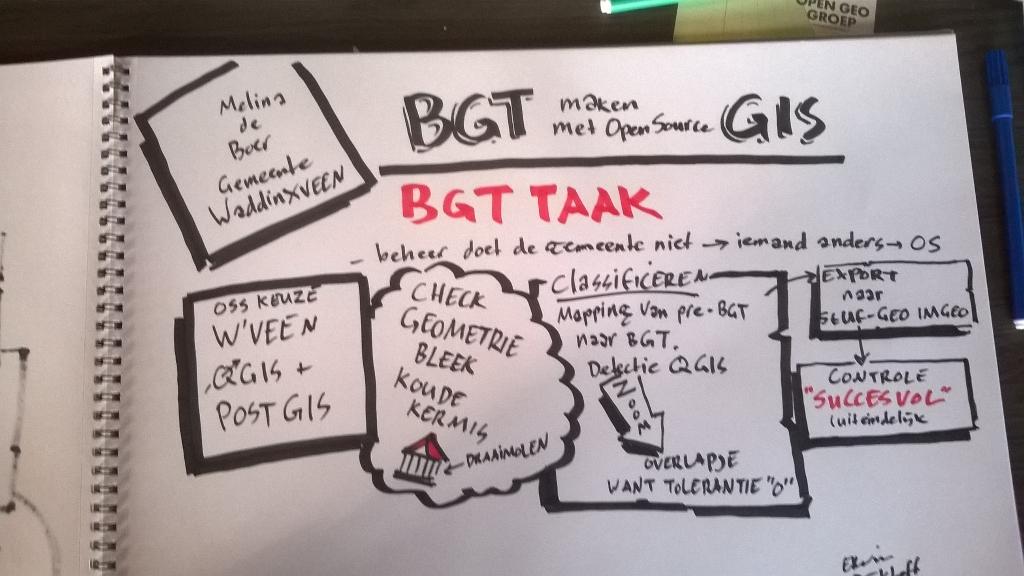 OPEN GEO
GROEP
Melina
de
Boer
Gemeente
WaddinXVEEN
BGT maken
met OpenSource GIS
BGT TAAK
- beheer doet de gemeente niet → iemand anders → OS
OSS KEUZE
W'VEEN
QGIS +
POSTGIS
CHECK
GEOMETRIE
BLEEK
KOUDE
KERMIS
← DRAAIMOLEN
Classificeren
Mapping van pre-BGT
naar BGT.
Detectie QGIS
ZOOM
OVERLAPJE
WANT TOLERANTIE "0"
EXPORT
naar
STUF-GEO IMGEO
CONTROLE
"SUCCESVOL"
(uiteindelijk